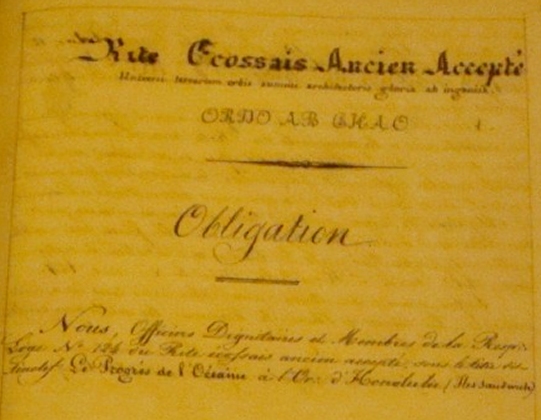 Rite Ecossais Ancien Accepté
Universi terrarum orbis summi architectoris gloria ab ingeniis.
ORDO AB CHAO
Obligation
Nous, Officiers Dignitaires et Membres de la Resp∴
Loge Nº 124 du Rite écossais ancien accepté, sous le titre dis-
tinctif Le Progrès de l'Océanie à l'Or∴ d'Honolulu (Iles Sandwich)